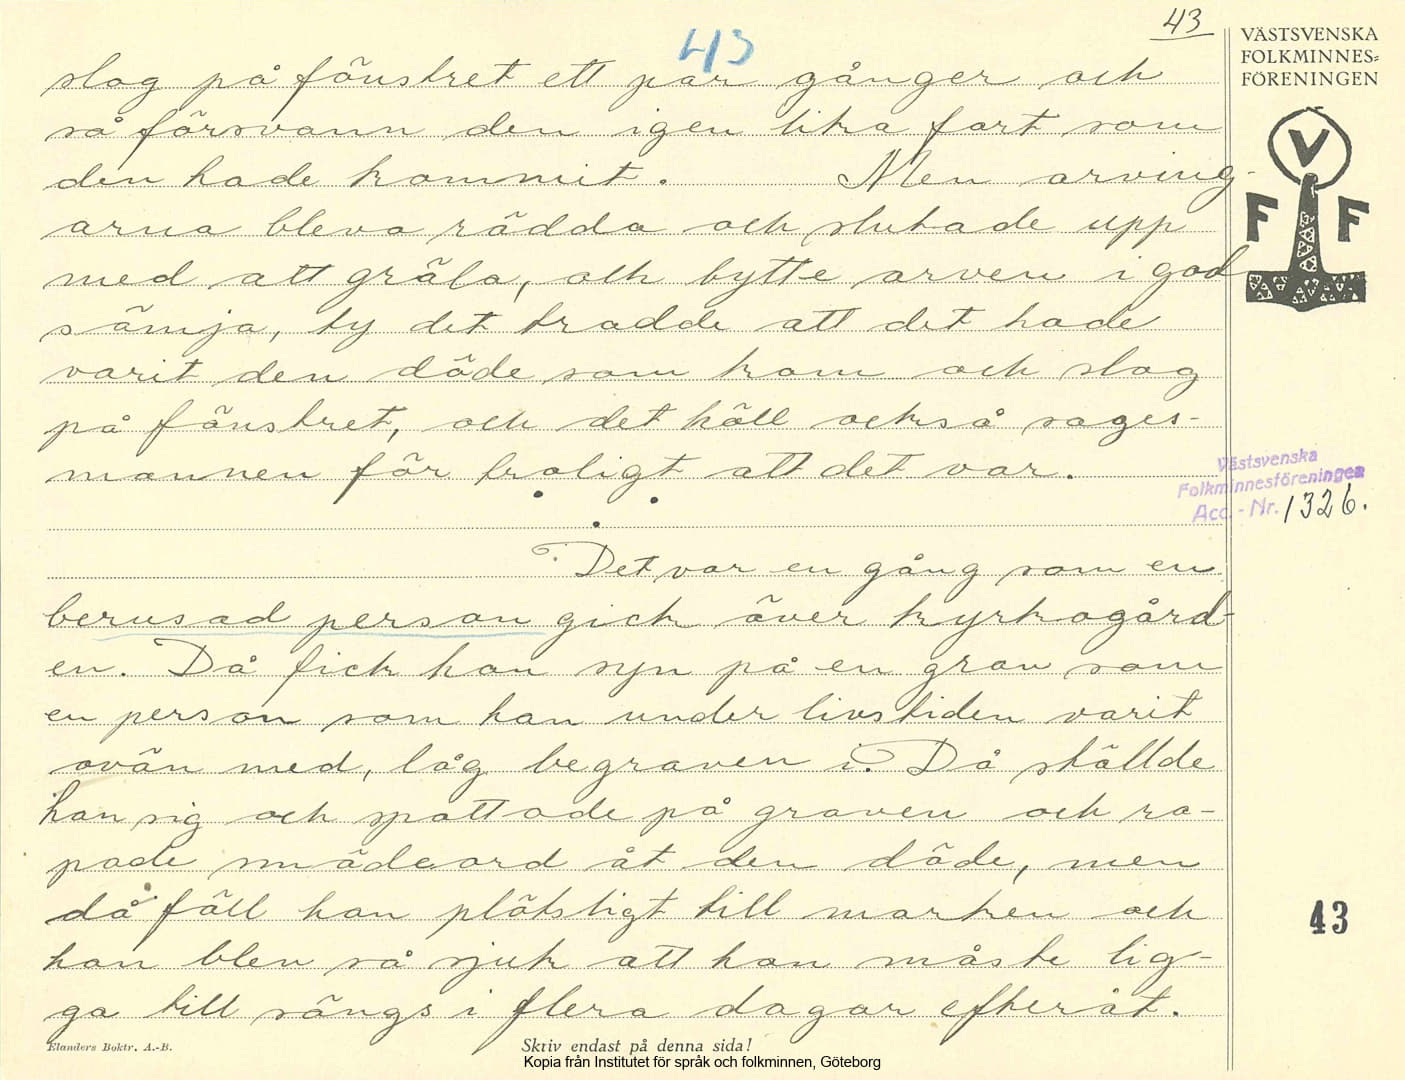 43
43
VÄSTSVENSKA
FOLKMINNES=
FÖRENINGEN
V
F F
slog på fönstret ett par gånger och
så försvann den igen lika fort som
den hade kommit. Men arving-
arna bleva rädda och slutade upp
med att gräla, och bytte arven i god
sämja, ty det trodde att det hade
varit den döde som kom och slog
på fönstret, och det höll också sages-
mannen för troligt att det var.
Västsvenska
Folkminnesföreningen
Acc.-Nr. 1326.
Det var en gång som en
berusad person gick över kyrkogård-
en. Då fick han syn på en grav som
en person som han under livstiden varit
ovän med, låg begraven i. Då ställde
han sig och spottade på graven och ro-
pade smädeord åt den döde, men
då föll han plötsligt till marken och
han blev så sjuk att han måste lig-
ga till sängs i flera dagar efteråt.
43
Elanders Boktr. A.-B.
Skriv endast på denna sida!
Kopia från Institutet för språk och folkminnen, Göteborg